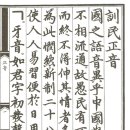 訓民正音
國之語音異乎中國
不相流通故愚民有
而終不得伸其情者
為此憫然新制二十八
使人人易習便於日用
ㄱ牙音如君字初發